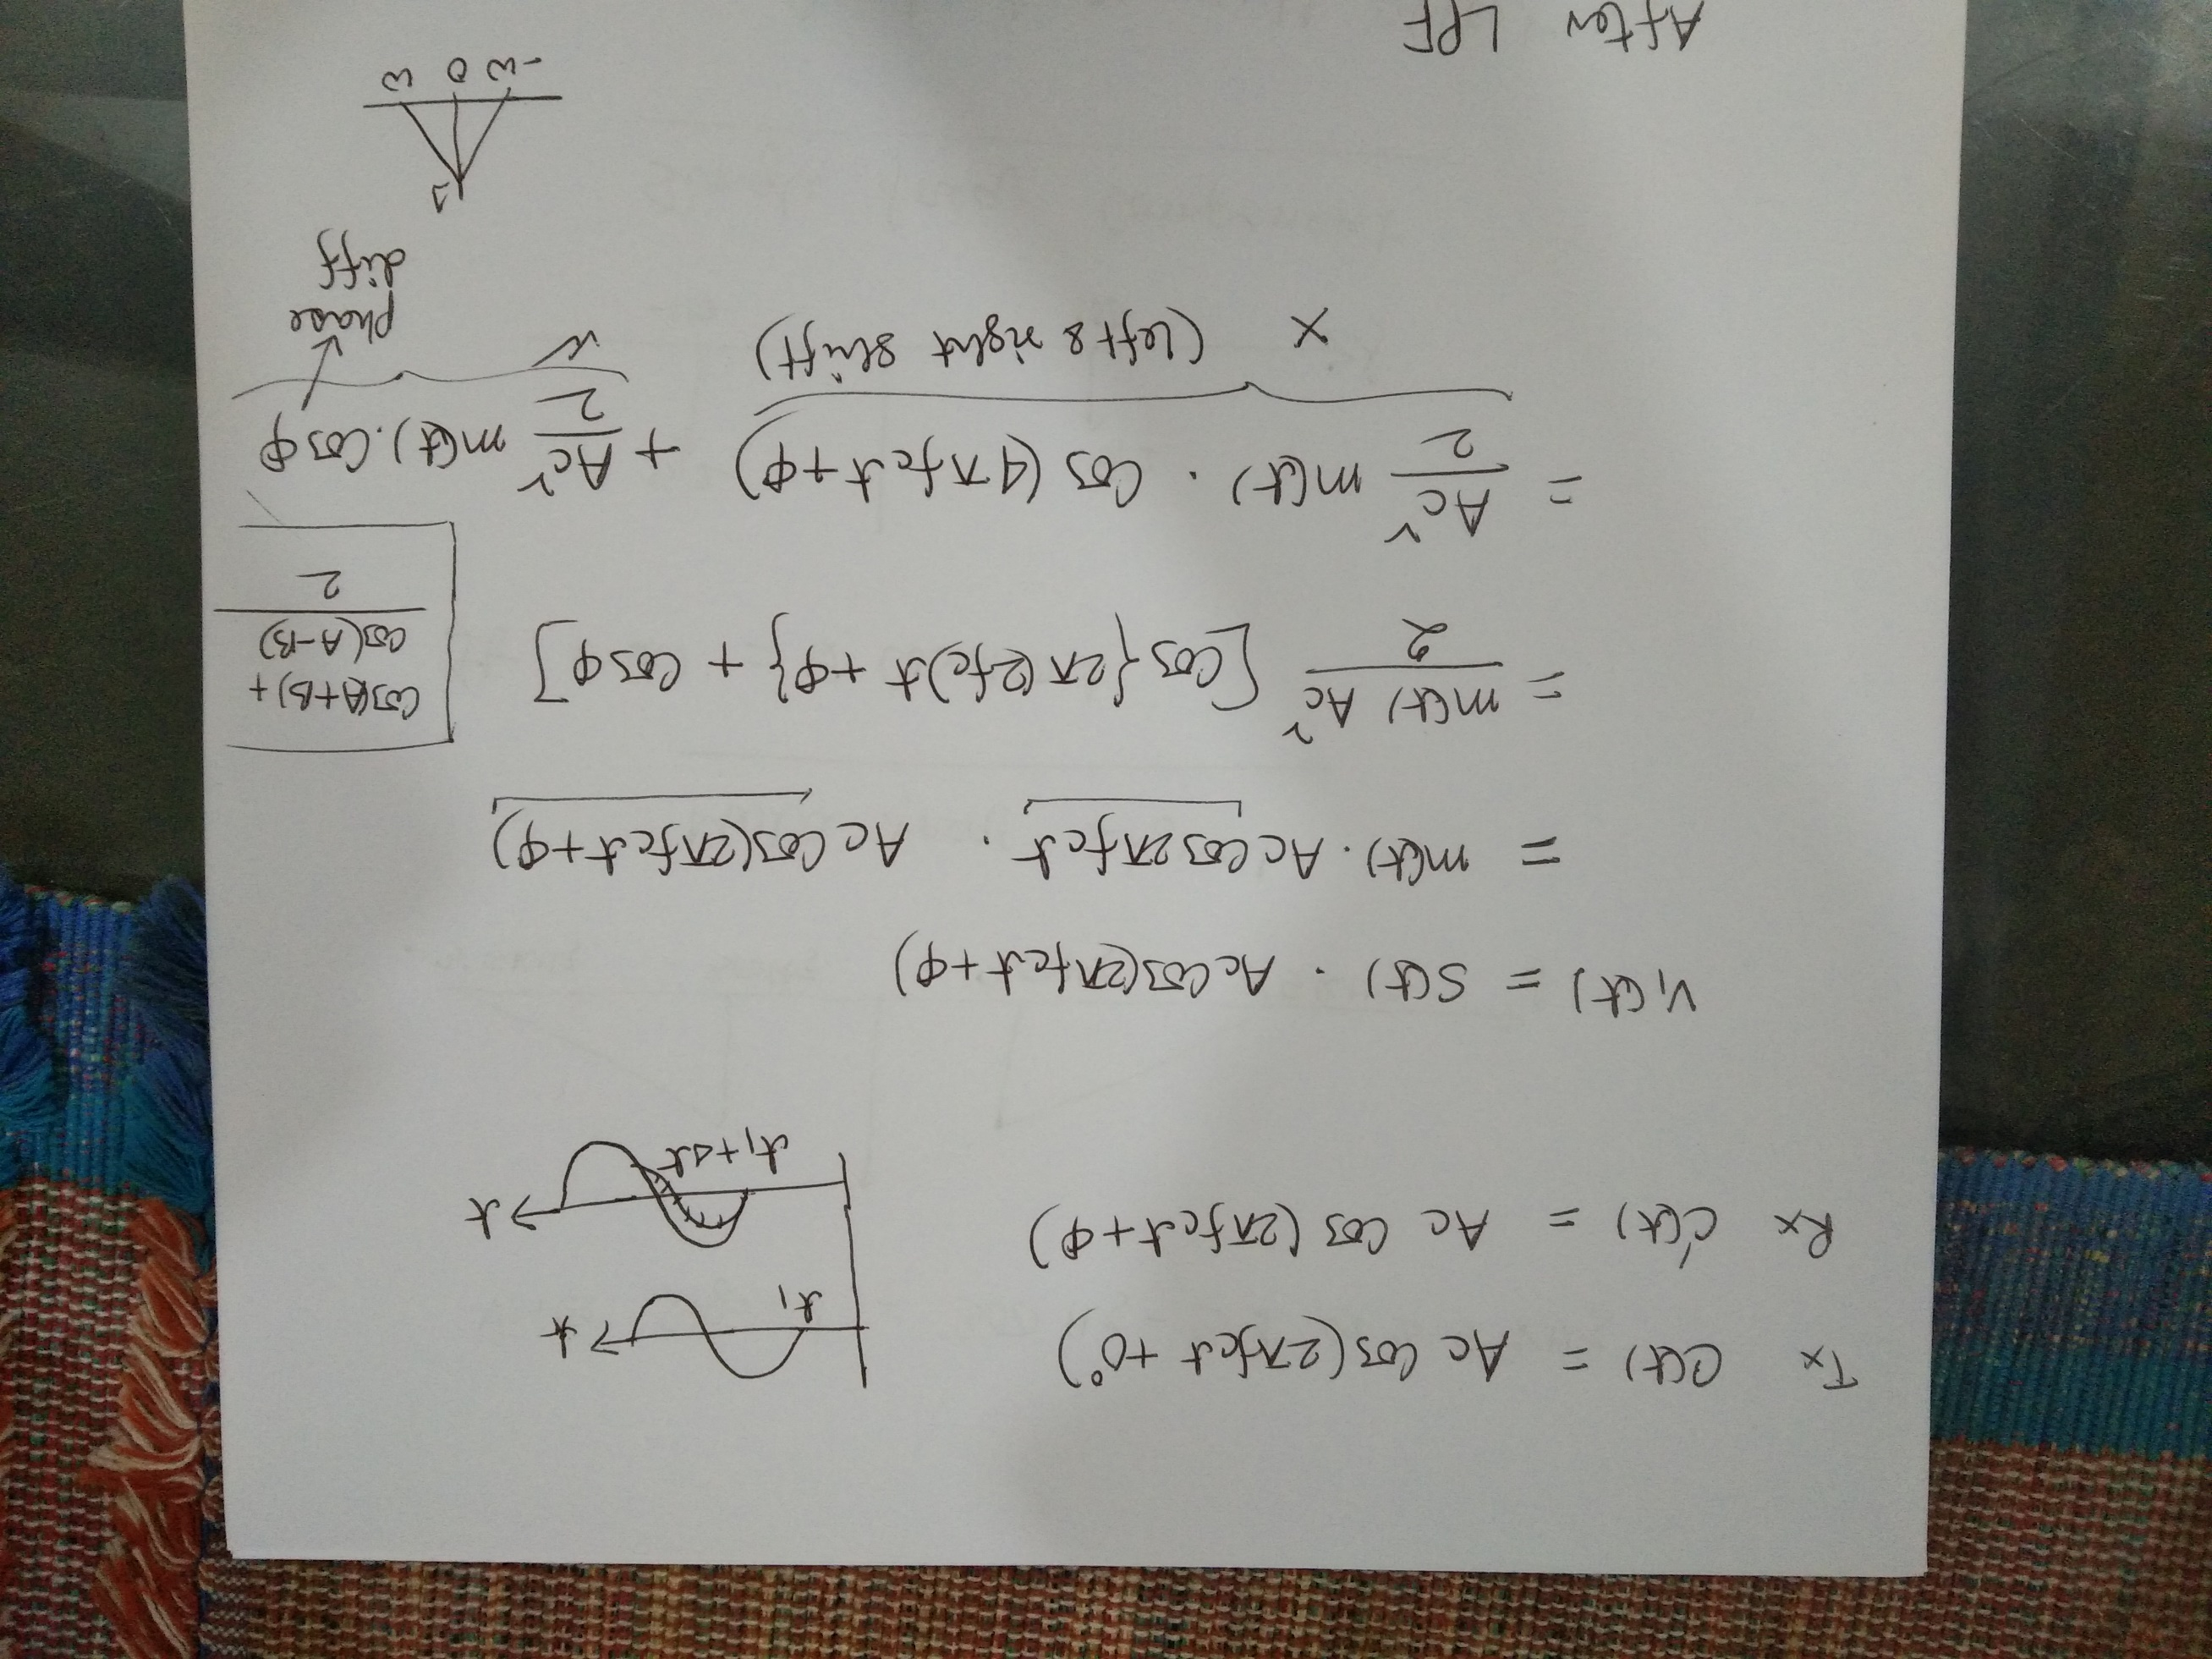 Tx C(t) = Ac Cos(2πfct + 0°)
t1 t
Rx C'(t) = Ac Cos(2πfct+φ)
t1+Δt t
V1(t) = S(t) · Ac Cos(2πfct+φ)
= m(t) · Ac Cos2πfct · Ac Cos(2πfct+φ)
= m(t) Ac² / 2 [Cos{2π(2fc)t + φ} + Cosφ]
Cos(A+B) + Cos(A-B) / 2
= Ac² / 2 m(t) · Cos(4πfct+φ) + Ac² / 2 m(t) · Cosφ
X (left & right shift)
phase
diff
-ω 0 ω
After LPF